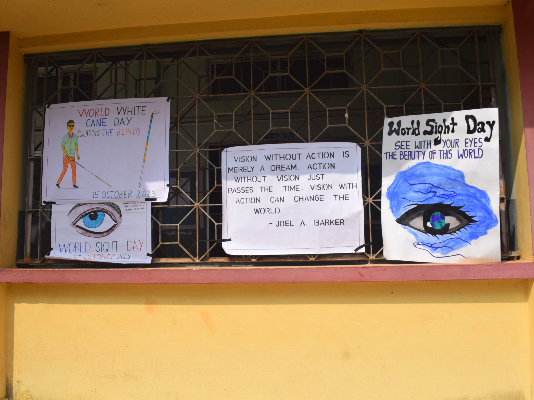 WORLD WHITE
CANE DAY
15 OCTOBER 2023
WORLD SIGHT DAY
OCTOBER 2023
VISION WITHOUT ACTION IS
MERELY A DREAM. ACTION
WITHOUT VISION JUST
PASSES THE TIME. VISION WITH
ACTION CAN CHANGE THE
WORLD
- JOEL A. BARKER
World Sight Day
SEE WITH YOUR EYES
THE BEAUTY OF THIS WORLD